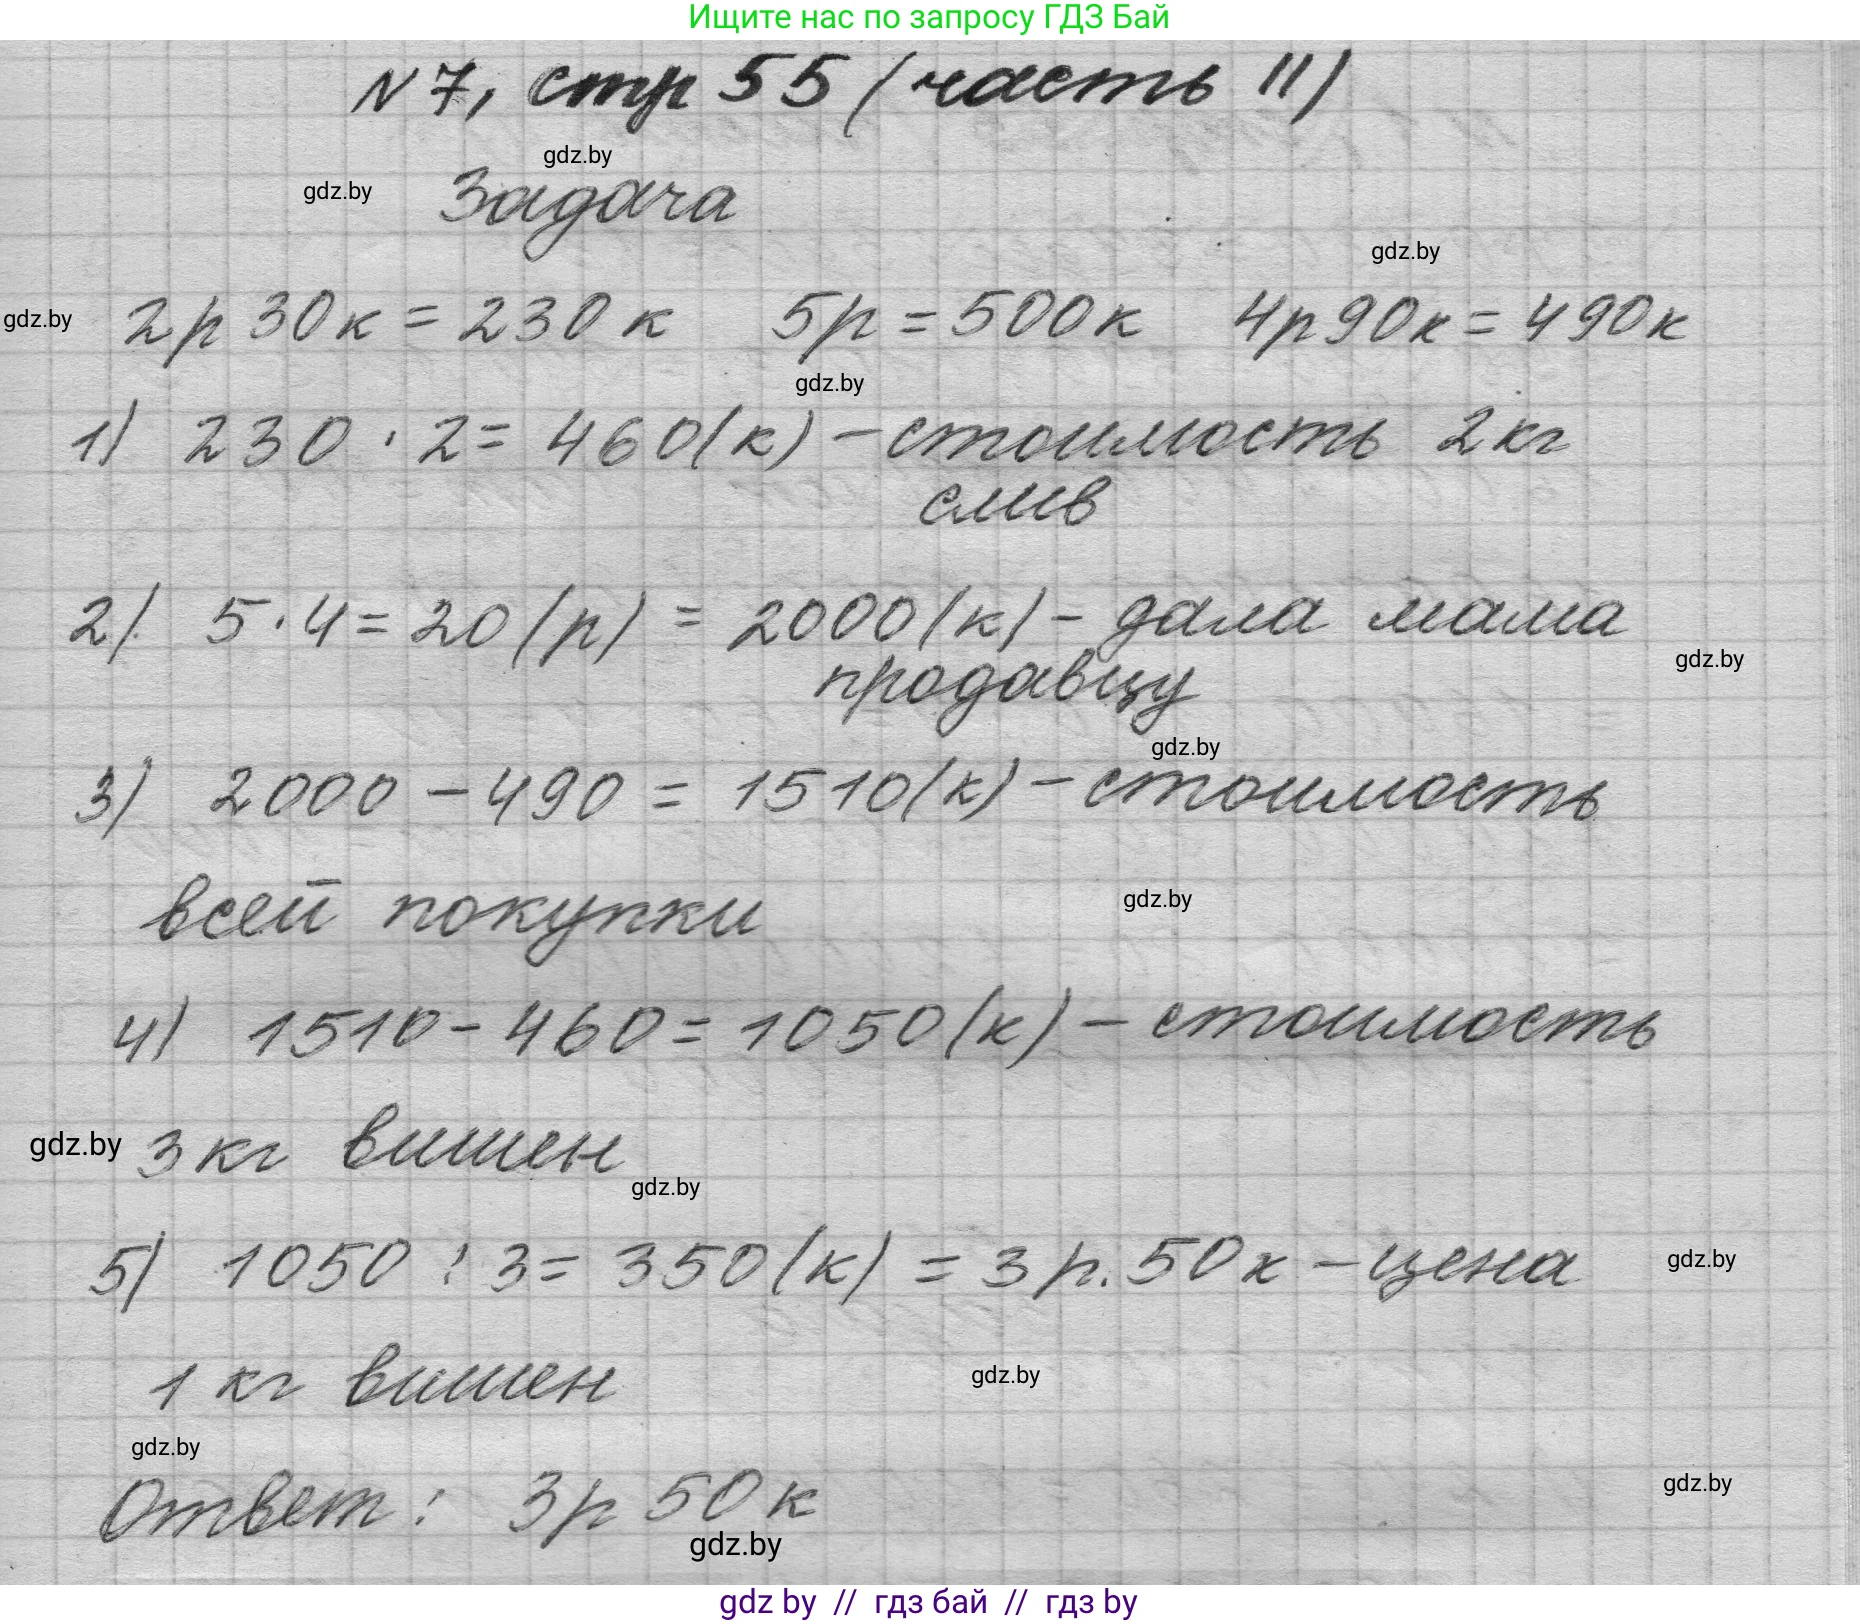 Ищите нас по запросу ГДЗ Бай
N 7, стр 55 (часть II)
gdz.by
gdz.by
Задача
gdz.by
gdz.by
2р 30к = 230 к 5р = 500к 4р90к = 490к
gdz.by
1) 230 · 2 = 460(к) – стоимость 2кг
слив
2). 5·4 = 20 (р) = 2000(к) – дала мама
gdz.by
продавцу
gdz.by
3) 2000 – 490 = 1510(к) – стоимость
всей покупки
gdz.by
4) 1510 – 460 = 1050(к) – стоимость
gdz.by
3кг вишен
gdz.by
5) 1050 : 3 = 350(к) = 3 р. 50к – цена
gdz.by
1 кг вишен
gdz.by
gdz.by
Ответ: 3р 50к
gdz.by
gdz.by
gdz by // гдз бай // гдз by